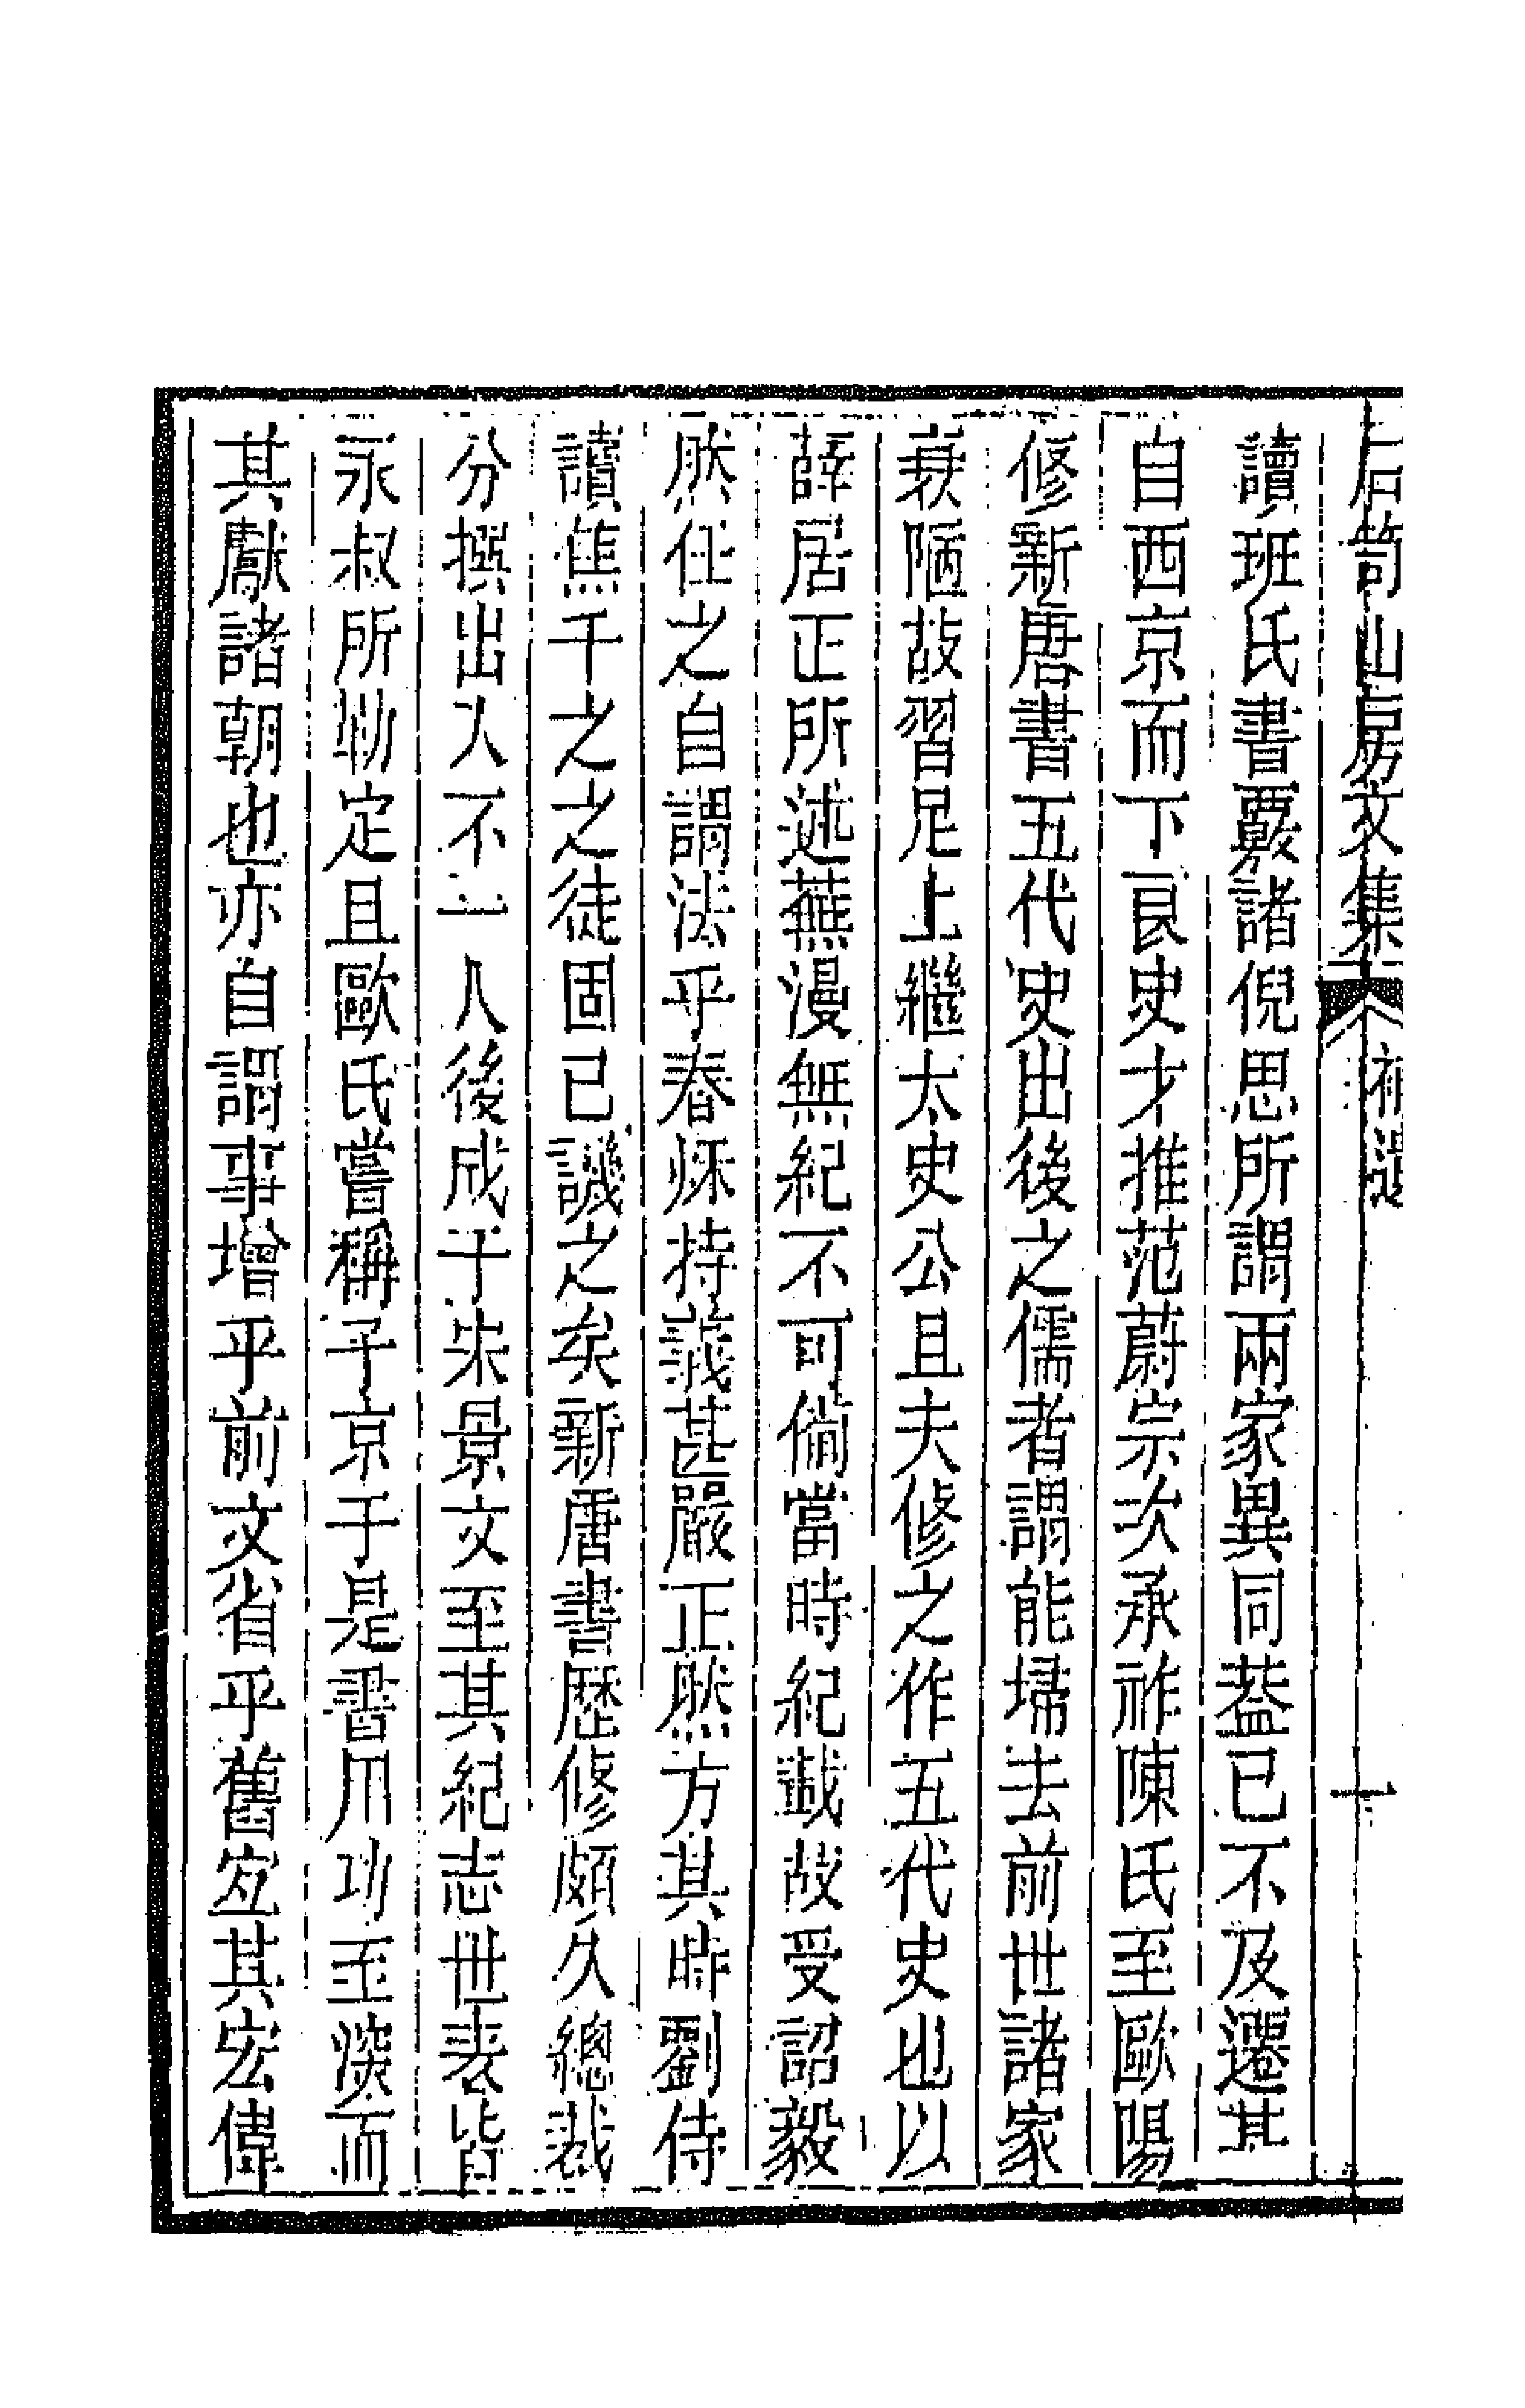 石笥山房文集 補遺 十
讀班氏書覈諸倪思所謂兩家異同葢已不及遷其
自西京而下良史才推范蔚宗次承祚陳氏至歐陽
修新唐書五代史出後之儒者謂能埽去前世諸家
衰陋故習足上繼太史公且夫修之作五代史也以
薛居正所述蕪漫無紀不可倘當時紀載故受詔毅
然任之自謂法乎春秋持義甚嚴正然方其時劉侍
讀焦千之之徒固已譏之矣新唐書歷修頗久總裁
分撰出入不一人後成于宋景文至其紀志世表皆
永叔所勒定且歐氏嘗稱子京于是書用功至深而
其獻諸朝也亦自謂事增乎前文省乎舊宐其宏偉